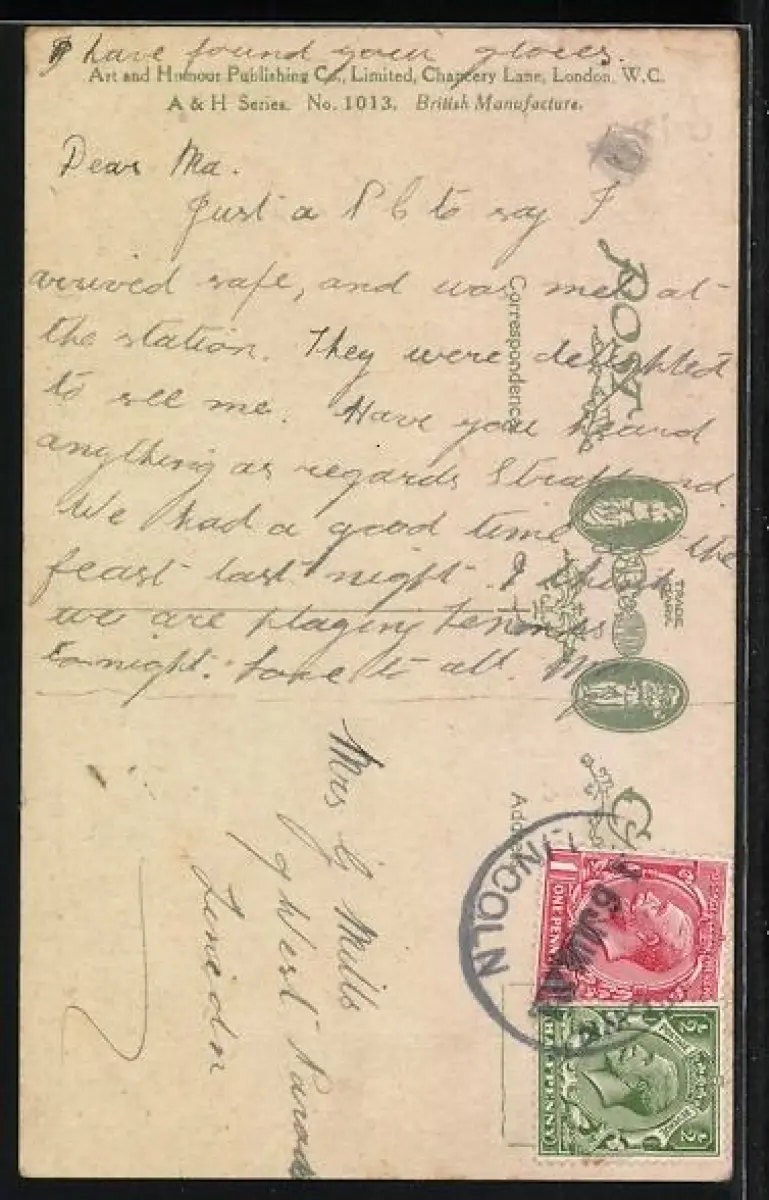 I have found your gloves.
Art and Humour Publishing Co., Limited, Chancery Lane, London, W.C.
A & H Series. No. 1013. British Manufacture.
Dear Ma.
Just a P C to say I
arrived safe, and was met at
the station. They were delighted
to see me. Have you heard
anything as regards
We had a good time the
feast last night. I think
we are playing tennis
tonight. Love to all.
POST
Correspondence
TRADE MARK
Address
Mrs G Mills
9 West Parade
Lincoln
LINCOLN
ONE PENNY
HALFPENNY
½ ½